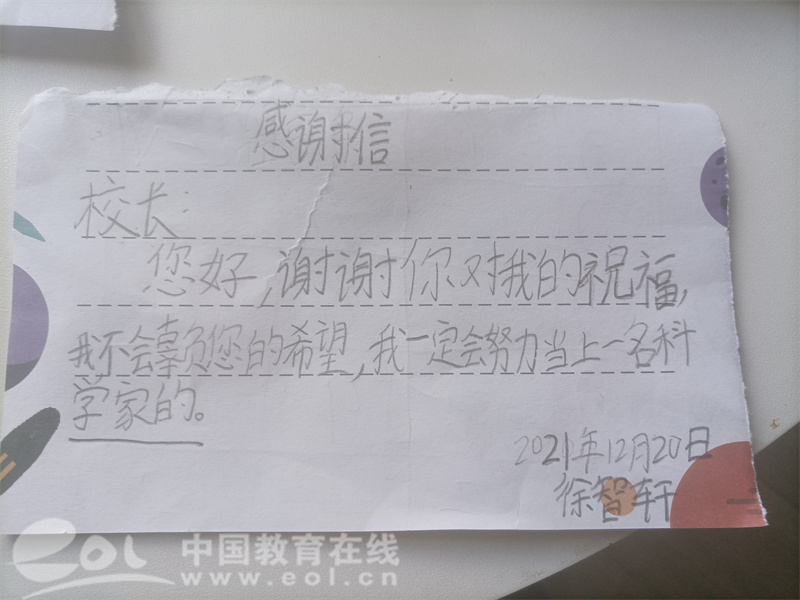 感谢信
校长:
您好,谢谢你对我的祝福,
我不会辜负您的希望,我一定会努力当上一名科
学家的。
2021年12月20日
徐智轩
eol 中国教育在线
www.eol.cn